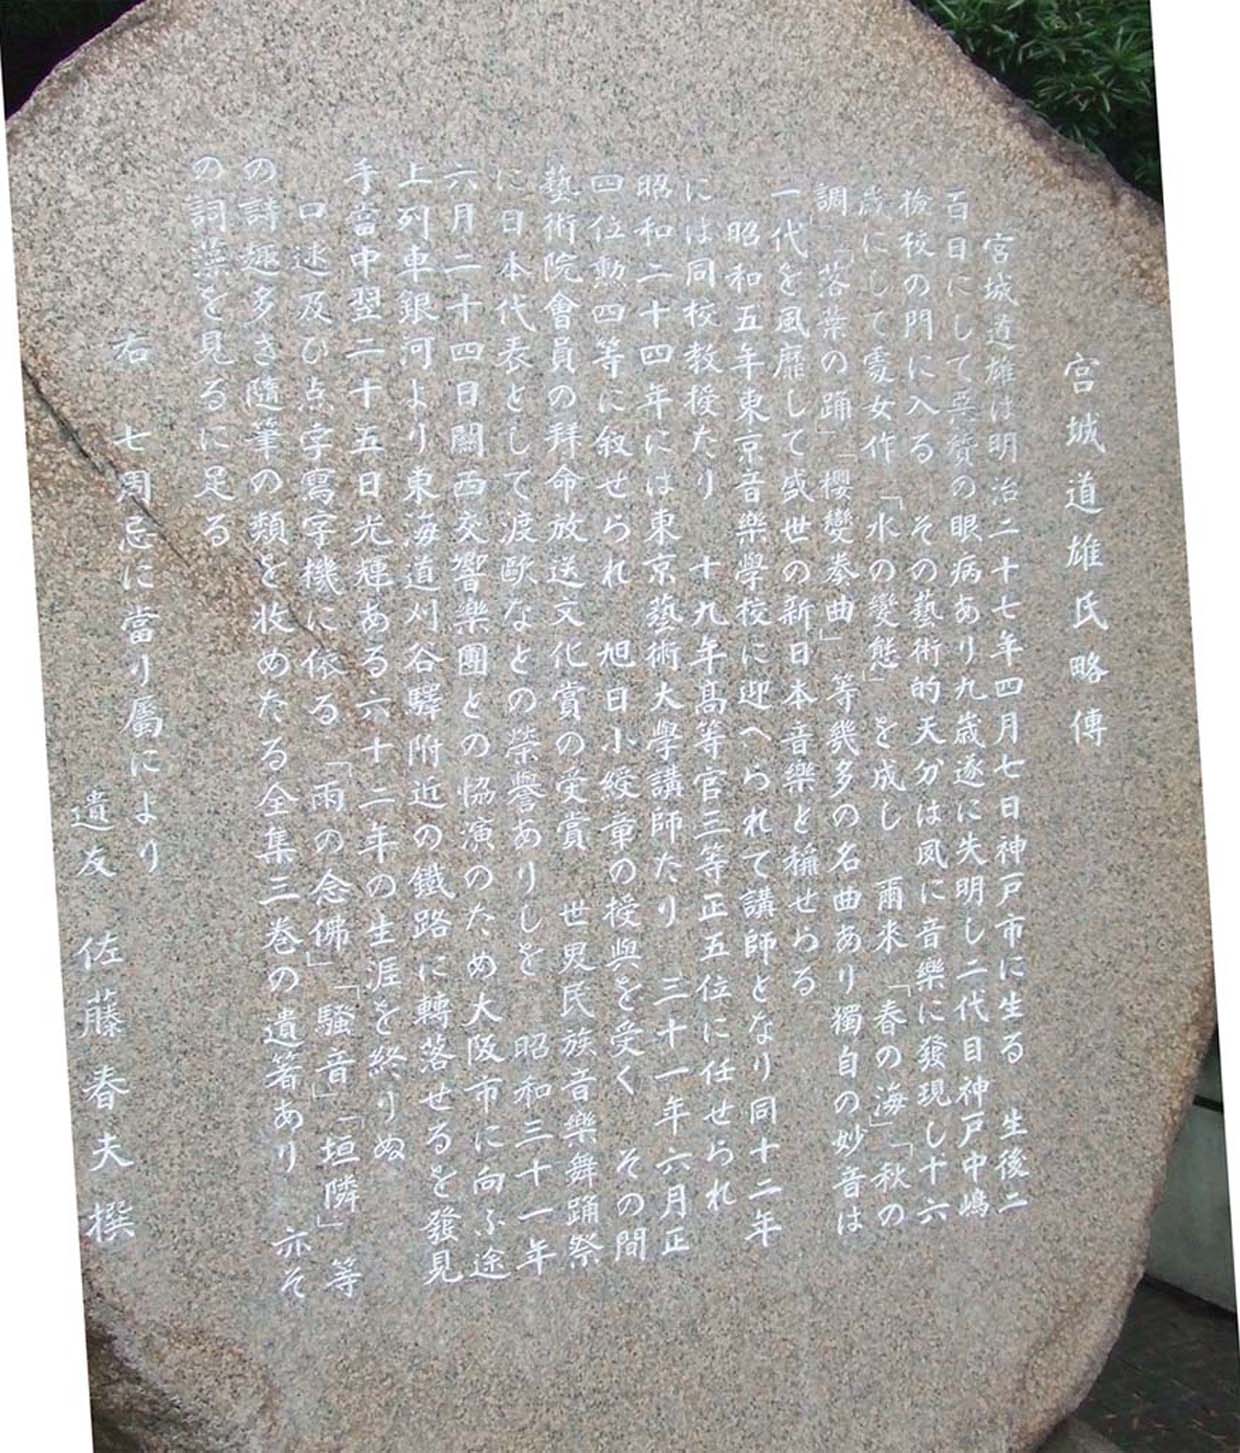 宮城道雄氏略傳
宮城道雄は明治二十七年四月七日神戸市に生る 生後二
百日にして悪質の眼病あり九歳遂に失明し二代目神戸中嶋
檢校の門に入る その藝術的天分は夙に音樂に發現し十六
歳にして處女作「水の變態」を成し 爾来「春の海」「秋の
調」「落葉の踊」「櫻變奏曲」等幾多の名曲あり獨自の妙音は
一代を風靡して盛世の新日本音樂と稱せらる
昭和五年東京音樂學校に迎へられて講師となり同十二年
には同校教授たり 十九年髙等官三等正五位に任せられ
昭和二十四年には東京藝術大學講師たり 三十一年六月正
四位勲四等に叙せられ 旭日小綬章の授與を受く その間
藝術院會員の拜命放送文化賞の受賞 世界民族音樂舞踊祭
に日本代表として渡歐なとの榮譽ありしを 昭和三十一年
六月二十四日關西交響樂團との恊演のため大阪市に向ふ途
上列車銀河より東海道刈谷驛附近の鐵路に轉落せるを發見
手當中翌二十五日光輝ある六十二年の生涯を終りぬ
口述及ひ点字寫字機に依る「雨の念佛」「騒音」「垣隣」等
の詩趣多き隨筆の類を收めたる全集三巻の遺著あり 亦そ
の詞華を見るに足る
右 七周忌に當り屬により
遺友 佐藤春夫 撰